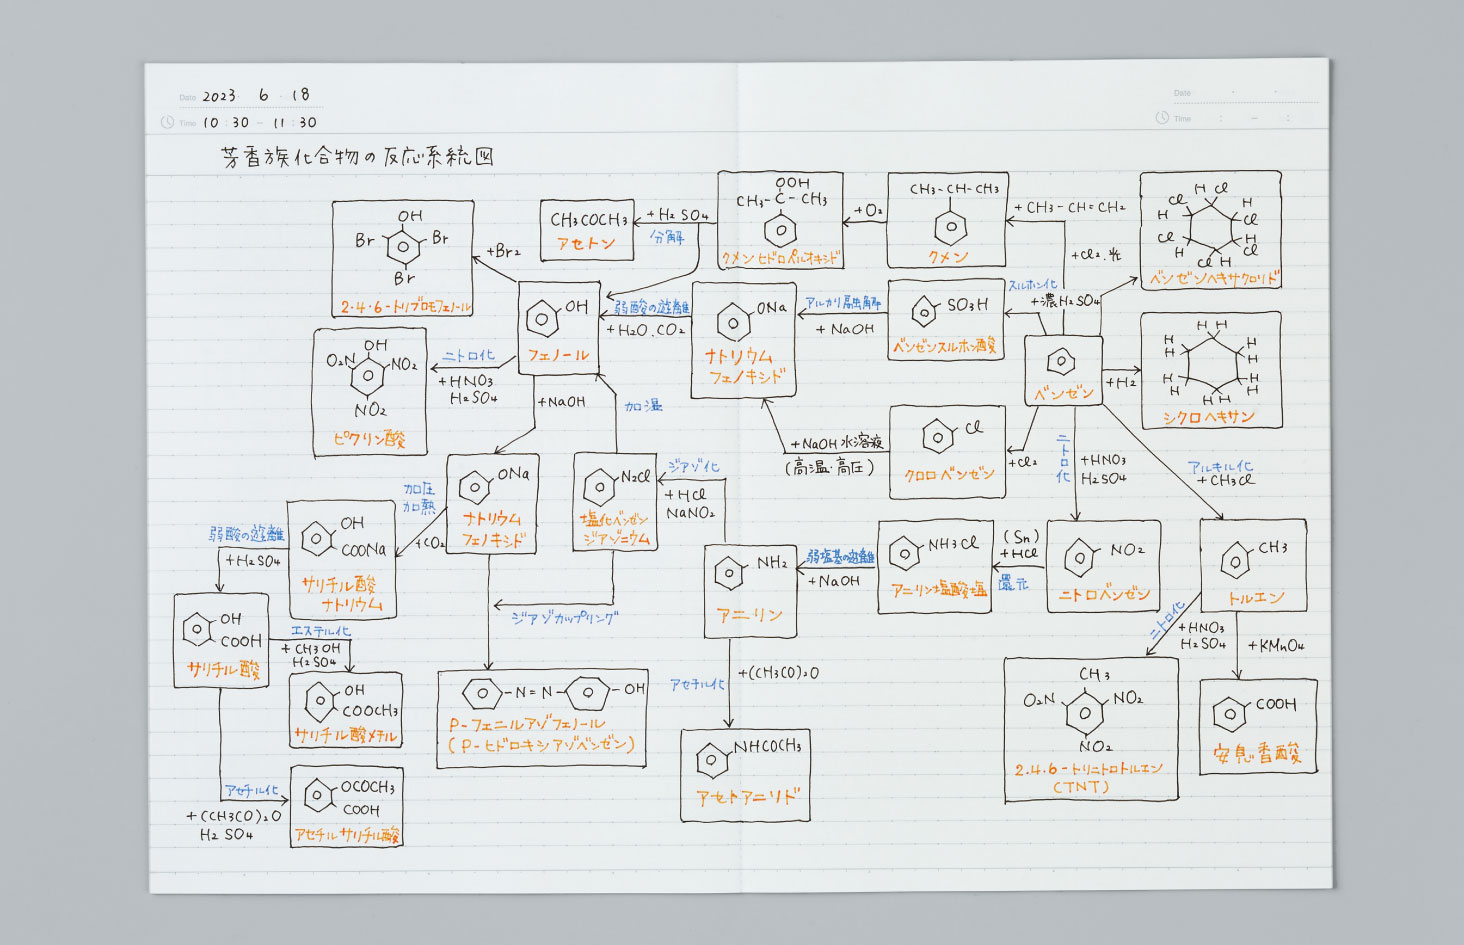 Date 2023 6 18
Time 10:30 - 11:30
Date
Time : - :
芳香族化合物の反応系統図
OH
Br
Br
Br
2.4.6-トリブロモフェノール
+Br2
CH3COCH3
アセトン
+H2SO4
分解
OOH
CH3-C-CH3
クメンヒドロペルオキシド
+O2
CH3-CH-CH3
クメン
+CH3-CH=CH2
+Cl2.光
H Cl
Cl
H
H
Cl
Cl
H
H
Cl
H
Cl
ベンゼンヘキサクロリド
OH
フェノール
弱酸の遊離
+H2O.CO2
ONa
ナトリウム
フェノキシド
アルカリ融解
+NaOH
SO3H
ベンゼンスルホン酸
スルホン化
+濃H2SO4
ベンゼン
+H2
H H
H
H
H
H
H
H
H
H
H H
シクロヘキサン
OH
O2N
NO2
NO2
ピクリン酸
ニトロ化
+HNO3
H2SO4
+NaOH
加温
+NaOH水溶液
(高温・高圧)
Cl
クロロベンゼン
+Cl2
ニトロ化
+HNO3
H2SO4
アルキル化
+CH3Cl
ONa
ナトリウム
フェノキシド
加圧
加熱
+CO2
N2Cl
塩化ベンゼン
ジアゾニウム
ジアゾ化
+HCl
NaNO2
OH
COONa
サリチル酸
ナトリウム
弱酸の遊離
+H2SO4
NH2
アニリン
弱塩基の遊離
+NaOH
NH3Cl
アニリン塩酸塩
(Sn)
+HCl
還元
NO2
ニトロベンゼン
CH3
トルエン
ジアゾカップリング
OH
COOH
サリチル酸
エステル化
+CH3OH
H2SO4
OH
COOCH3
サリチル酸メチル
-N=N-
-OH
P-フェニルアゾフェノール
(P-ヒドロキシアゾベンゼン)
アセチル化
+(CH3CO)2O
NHCOCH3
アセトアニリド
ニトロ化
+HNO3
H2SO4
+KMnO4
CH3
O2N
NO2
NO2
2.4.6-トリニトロトルエン
(TNT)
COOH
安息香酸
アセチル化
+(CH3CO)2O
H2SO4
OCOCH3
COOH
アセチルサリチル酸